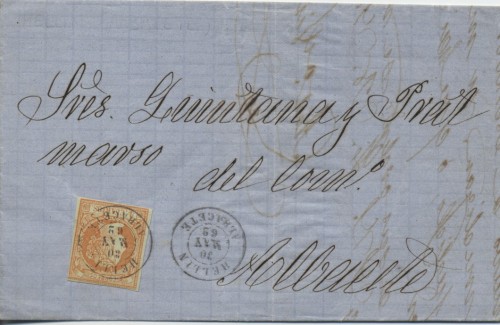 Sres. Quintana y Prat
marso del Comº.
Albacete
HELLIN
20
MAY
62
ALBACETE
HELLIN
20
MAY
62
ALBACETE